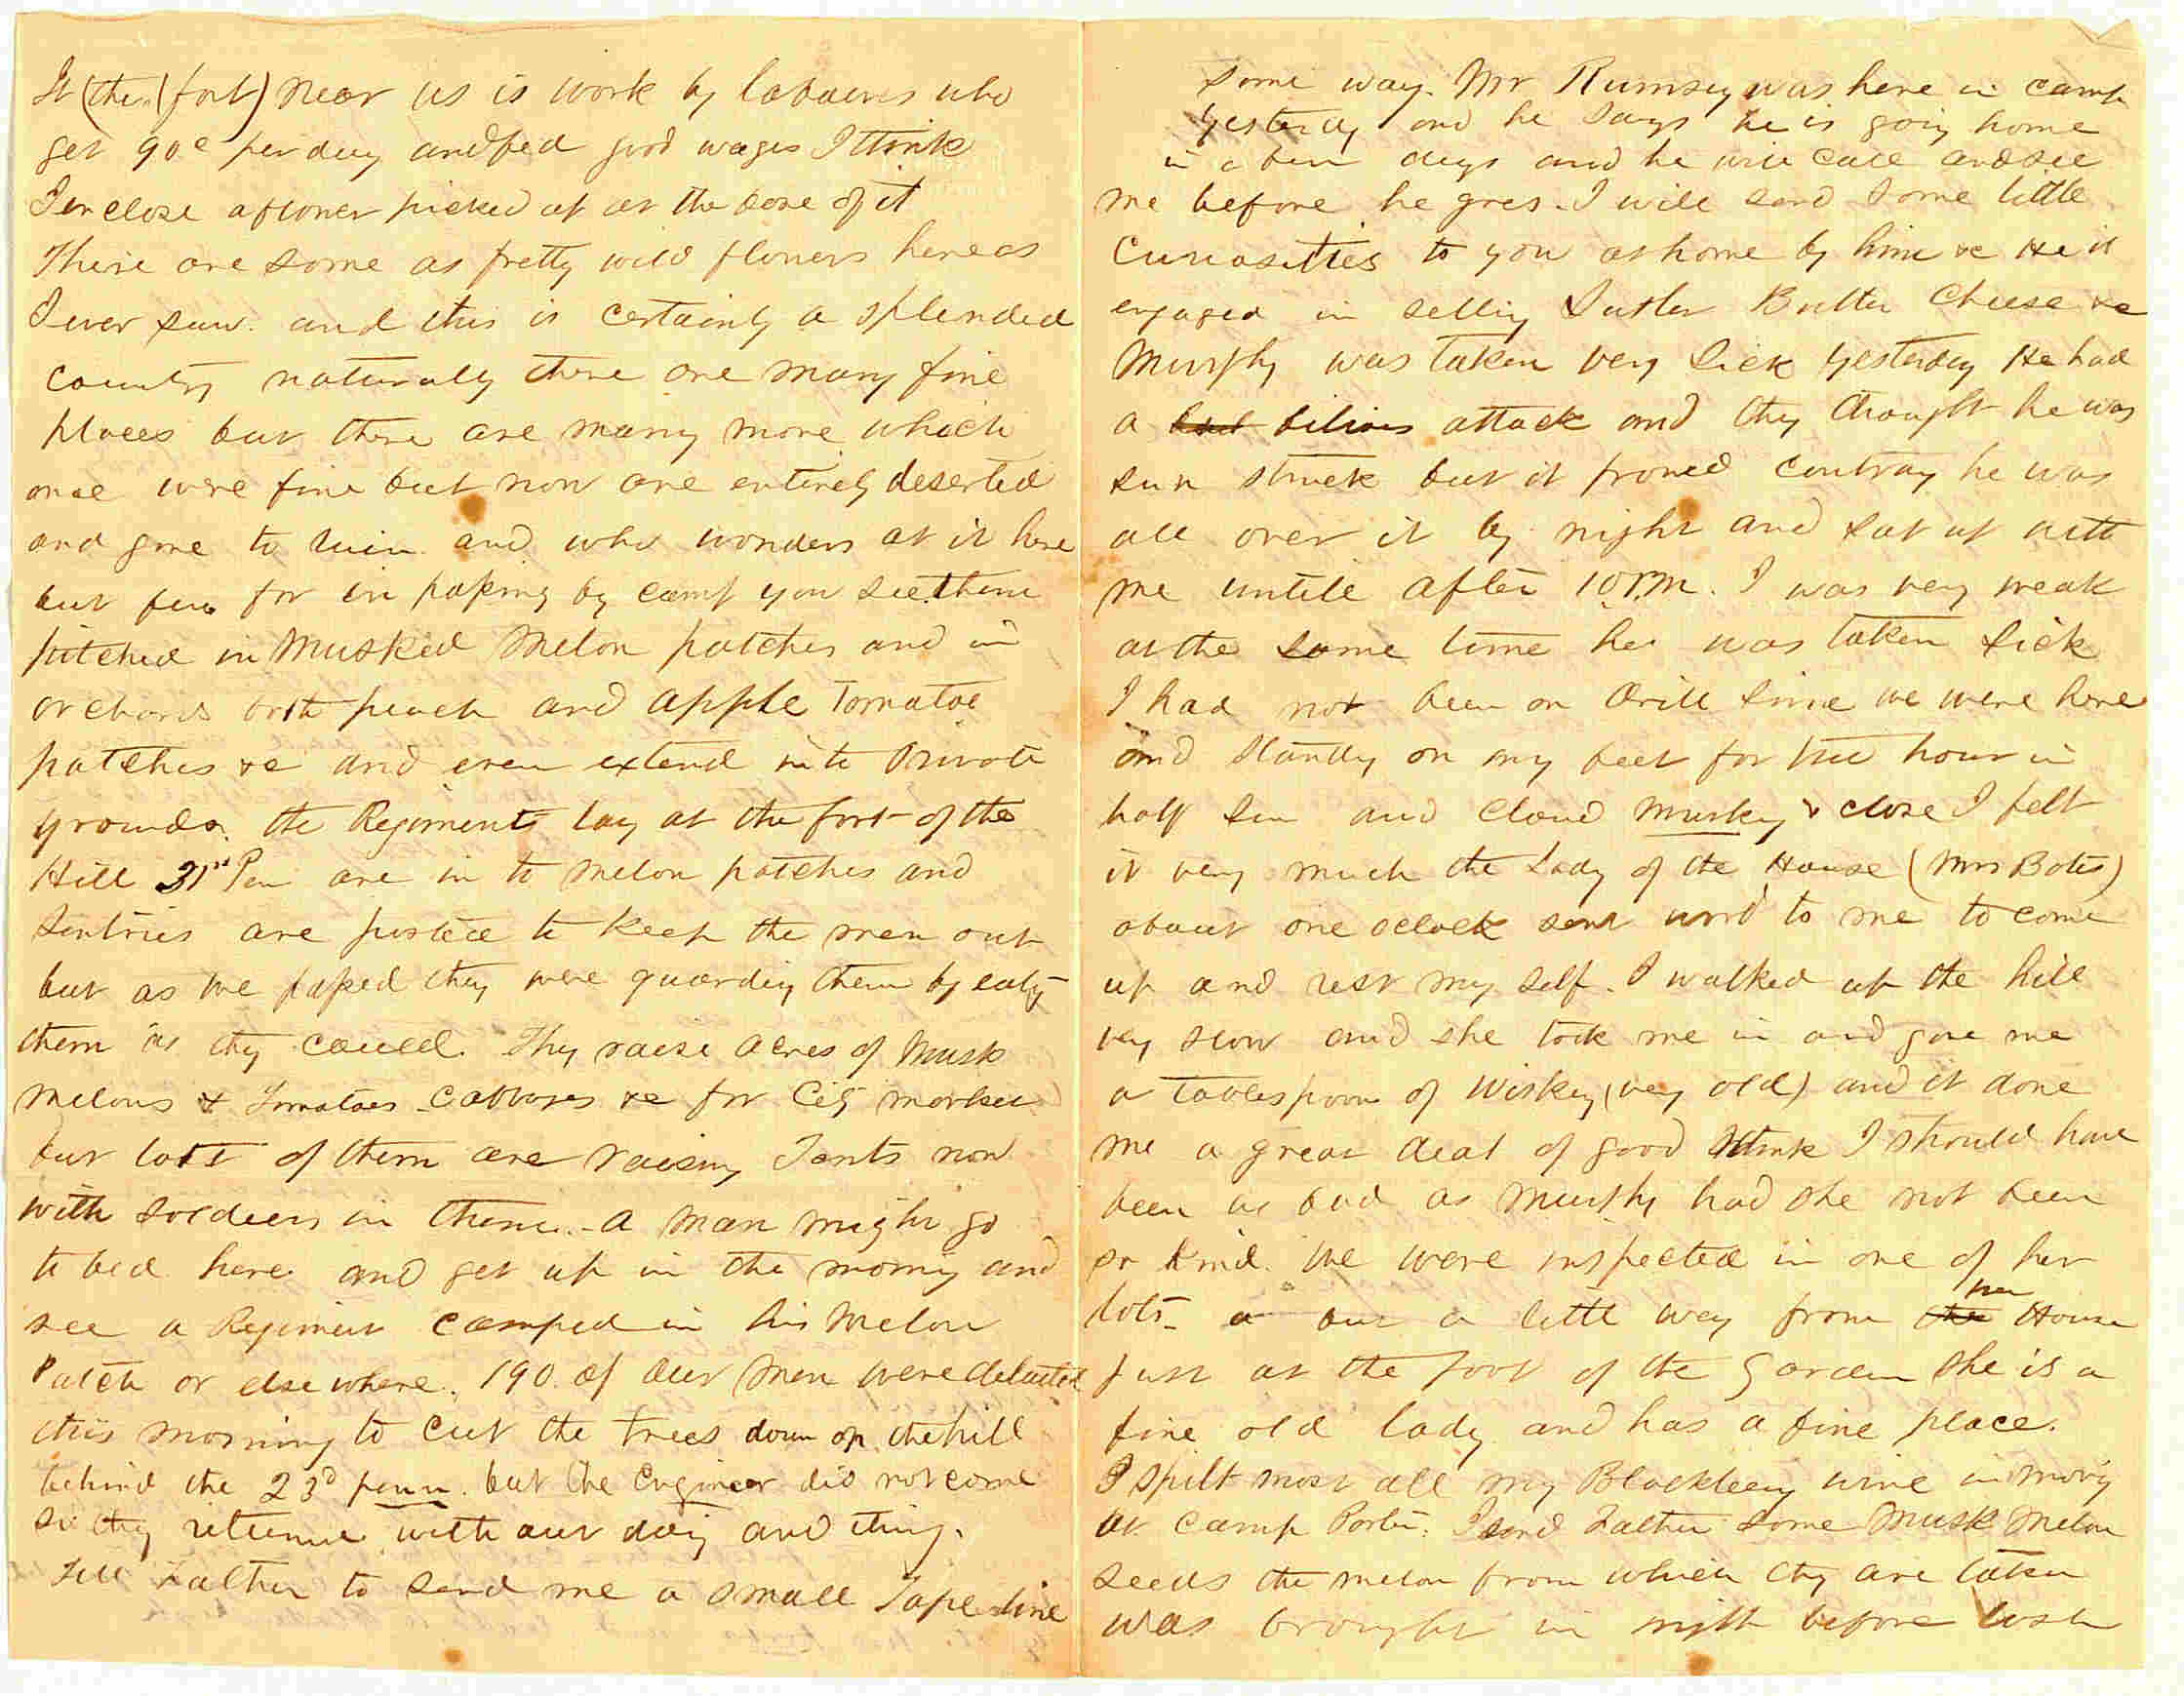 It (the fort) near us is work by labourers who
get 90c per day and fed good wages I think
I enclose a flower picked up at the base of it
There are some as pretty wild flowers here as
I ever saw. and this is certainly a splended
country naturally there are many fine
places but there are many more which
once were fine but now are entirely deserted
and gone to ruin and who wonders at it here
but few for in passing by camp you see them
pitched in Musked Melon patches and in
orchards both peach and apple Tomatoe
patches &c and even extend into private
grounds. the Regiments lay at the foot of the
Hill 31st Pen are in to melon patches and
Sentries are posted to keep the men out
but as we passed they were guarding them by eatig
them as they could. They raise acres of Musk
melons & Tomatoes Cabbages &c for City market
but lots of them are raising Tents now
with soldiers in them. - a man might go
to bed here and get up in the morning and
see a Regiment camped in his Melon
Patch or elsewhere. 190 of our men were detailed
this morning to cut the trees down on the hill
behind the 23d penn. but the Engineer did not come
so they returned without doing any thing.
Tell Father to send me a small Tape line
some way. Mr Rumsey was here in camp
yesterday and he says he is going home
in a few days and he will call and see
me before he goes. I will send some little
curiosities to you at home by him &c He is
engaged in selling Sutler Butter Cheese &c
Murphy was taken very sick yesterday He had
a bilious attack and they thought he was
sun struck but it proved contray he was
all over it by night and sat up with
me untill after 10 P.M. I was very weak
at the same time he was taken sick
I had not been on drill since we were here
and standing on my feet for the hour in
half sun and cloud musky & close I felt
it very much the Lady of the House (Mrs Bates)
about one oclock sent word to me to come
up and rest my self. I walked up the hill
very slow and she took me in and gave me
a tablespoon of Wiskey (very old) and it done
me a great deal of good I think I should have
been as bad as Murphy had she not been
so kind. We were inspected in one of her
lots - but a little way from the her House
just at the foot of the Garden she is a
fine old lady and has a fine place.
I spilt most all my Blackberry wine in moving
at Camp Porter. I send Father some Musk Melon
seeds the melon from which they are taken
was brought in night before last